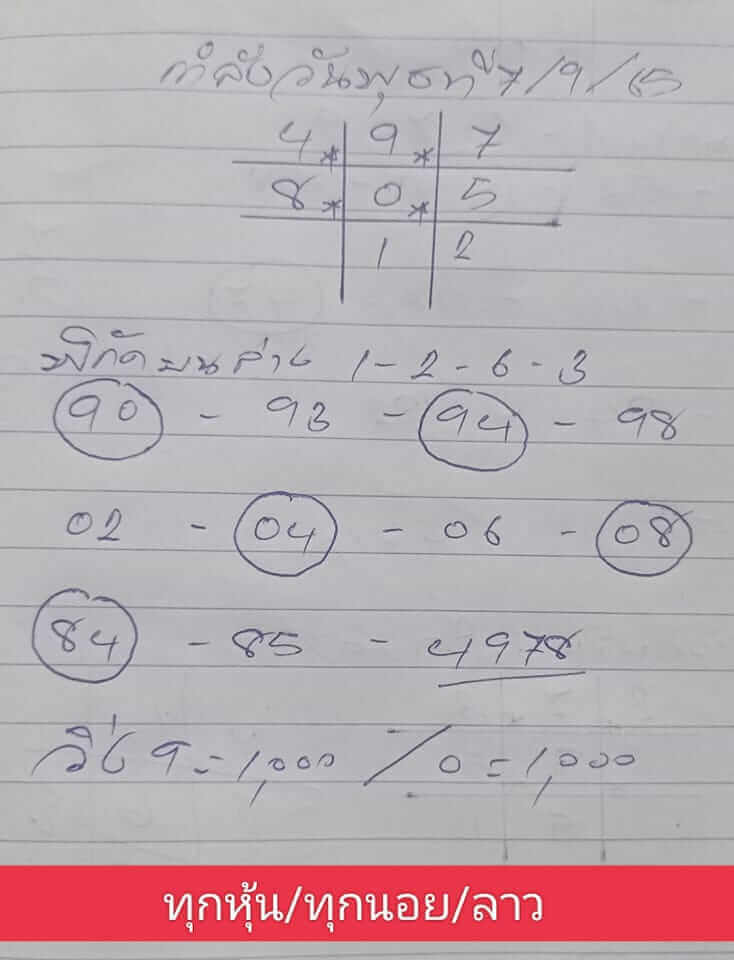 กำลังวันพุธที่ 7/9/65
4 * 9 * 7
8 * 0 * 5
1 2
พิกัดบนล่าง 1-2-6-3
90 - 93 - 94 - 98
02 - 04 - 06 - 08
84 - 85 - 4978
วิ่ง 9=1,000 / 0=1,000
ทุกหุ้น/ทุกนอย/ลาว